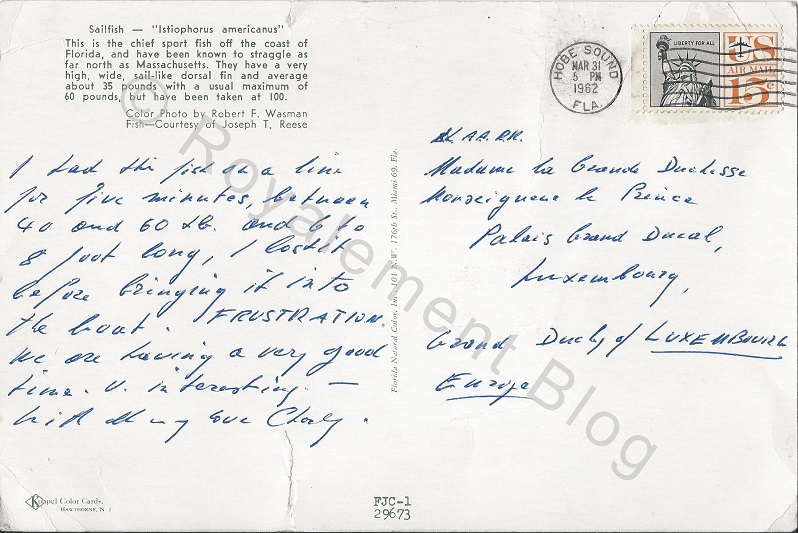 Sailfish — "Istiophorus americanus"
This is the chief sport fish off the coast of
Florida, and have been known to straggle as
far north as Massachusetts. They have a very
high, wide, sail-like dorsal fin and average
about 35 pounds with a usual maximum of
60 pounds, but have been taken at 100.
Color Photo by Robert F. Wasman
Fish—Courtesy of Joseph T. Reese
I had this fish on a line
for five minutes, between
40 and 60 Lb. and 6 to
8 foot long, I lost it
before bringing it into
the boat. FRUSTRATION.
We are having a very good
time. V. interesting. —
With all my love Charly.
Koppel Color Cards.
HAWTHORNE, N. J.
Florida Natural Color, Inc., 101 N.W. 176th St., Miami 69, Fla.
FJC-1
29673
HOBE SOUND
MAR 31
5 PM
1962
FLA.
LIBERTY FOR ALL
US
AIR MAIL
15¢
LL.AA.RR.
Madame la Grande Duchesse
Monseigneur le Prince
Palais Grand Ducal,
Luxembourg,
Grand Duchy of LUXEMBOURG
Europe
© Royalement Blog